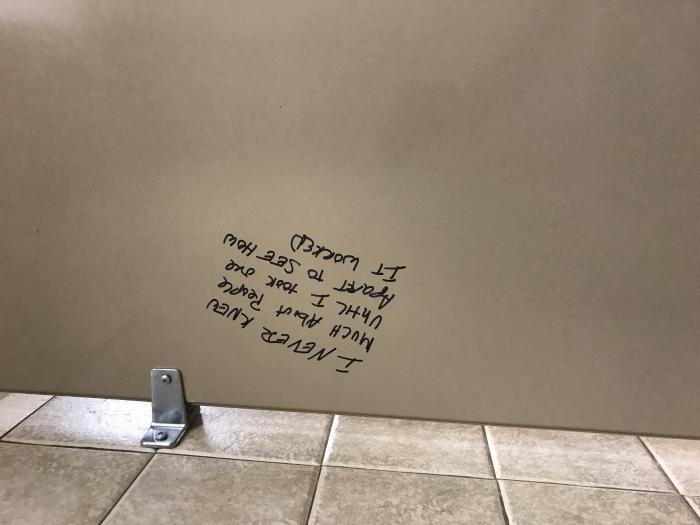 I NEVER KNEW
MUCH About People
UNtiL I took one
APART TO SEE HOW
IT WORKED